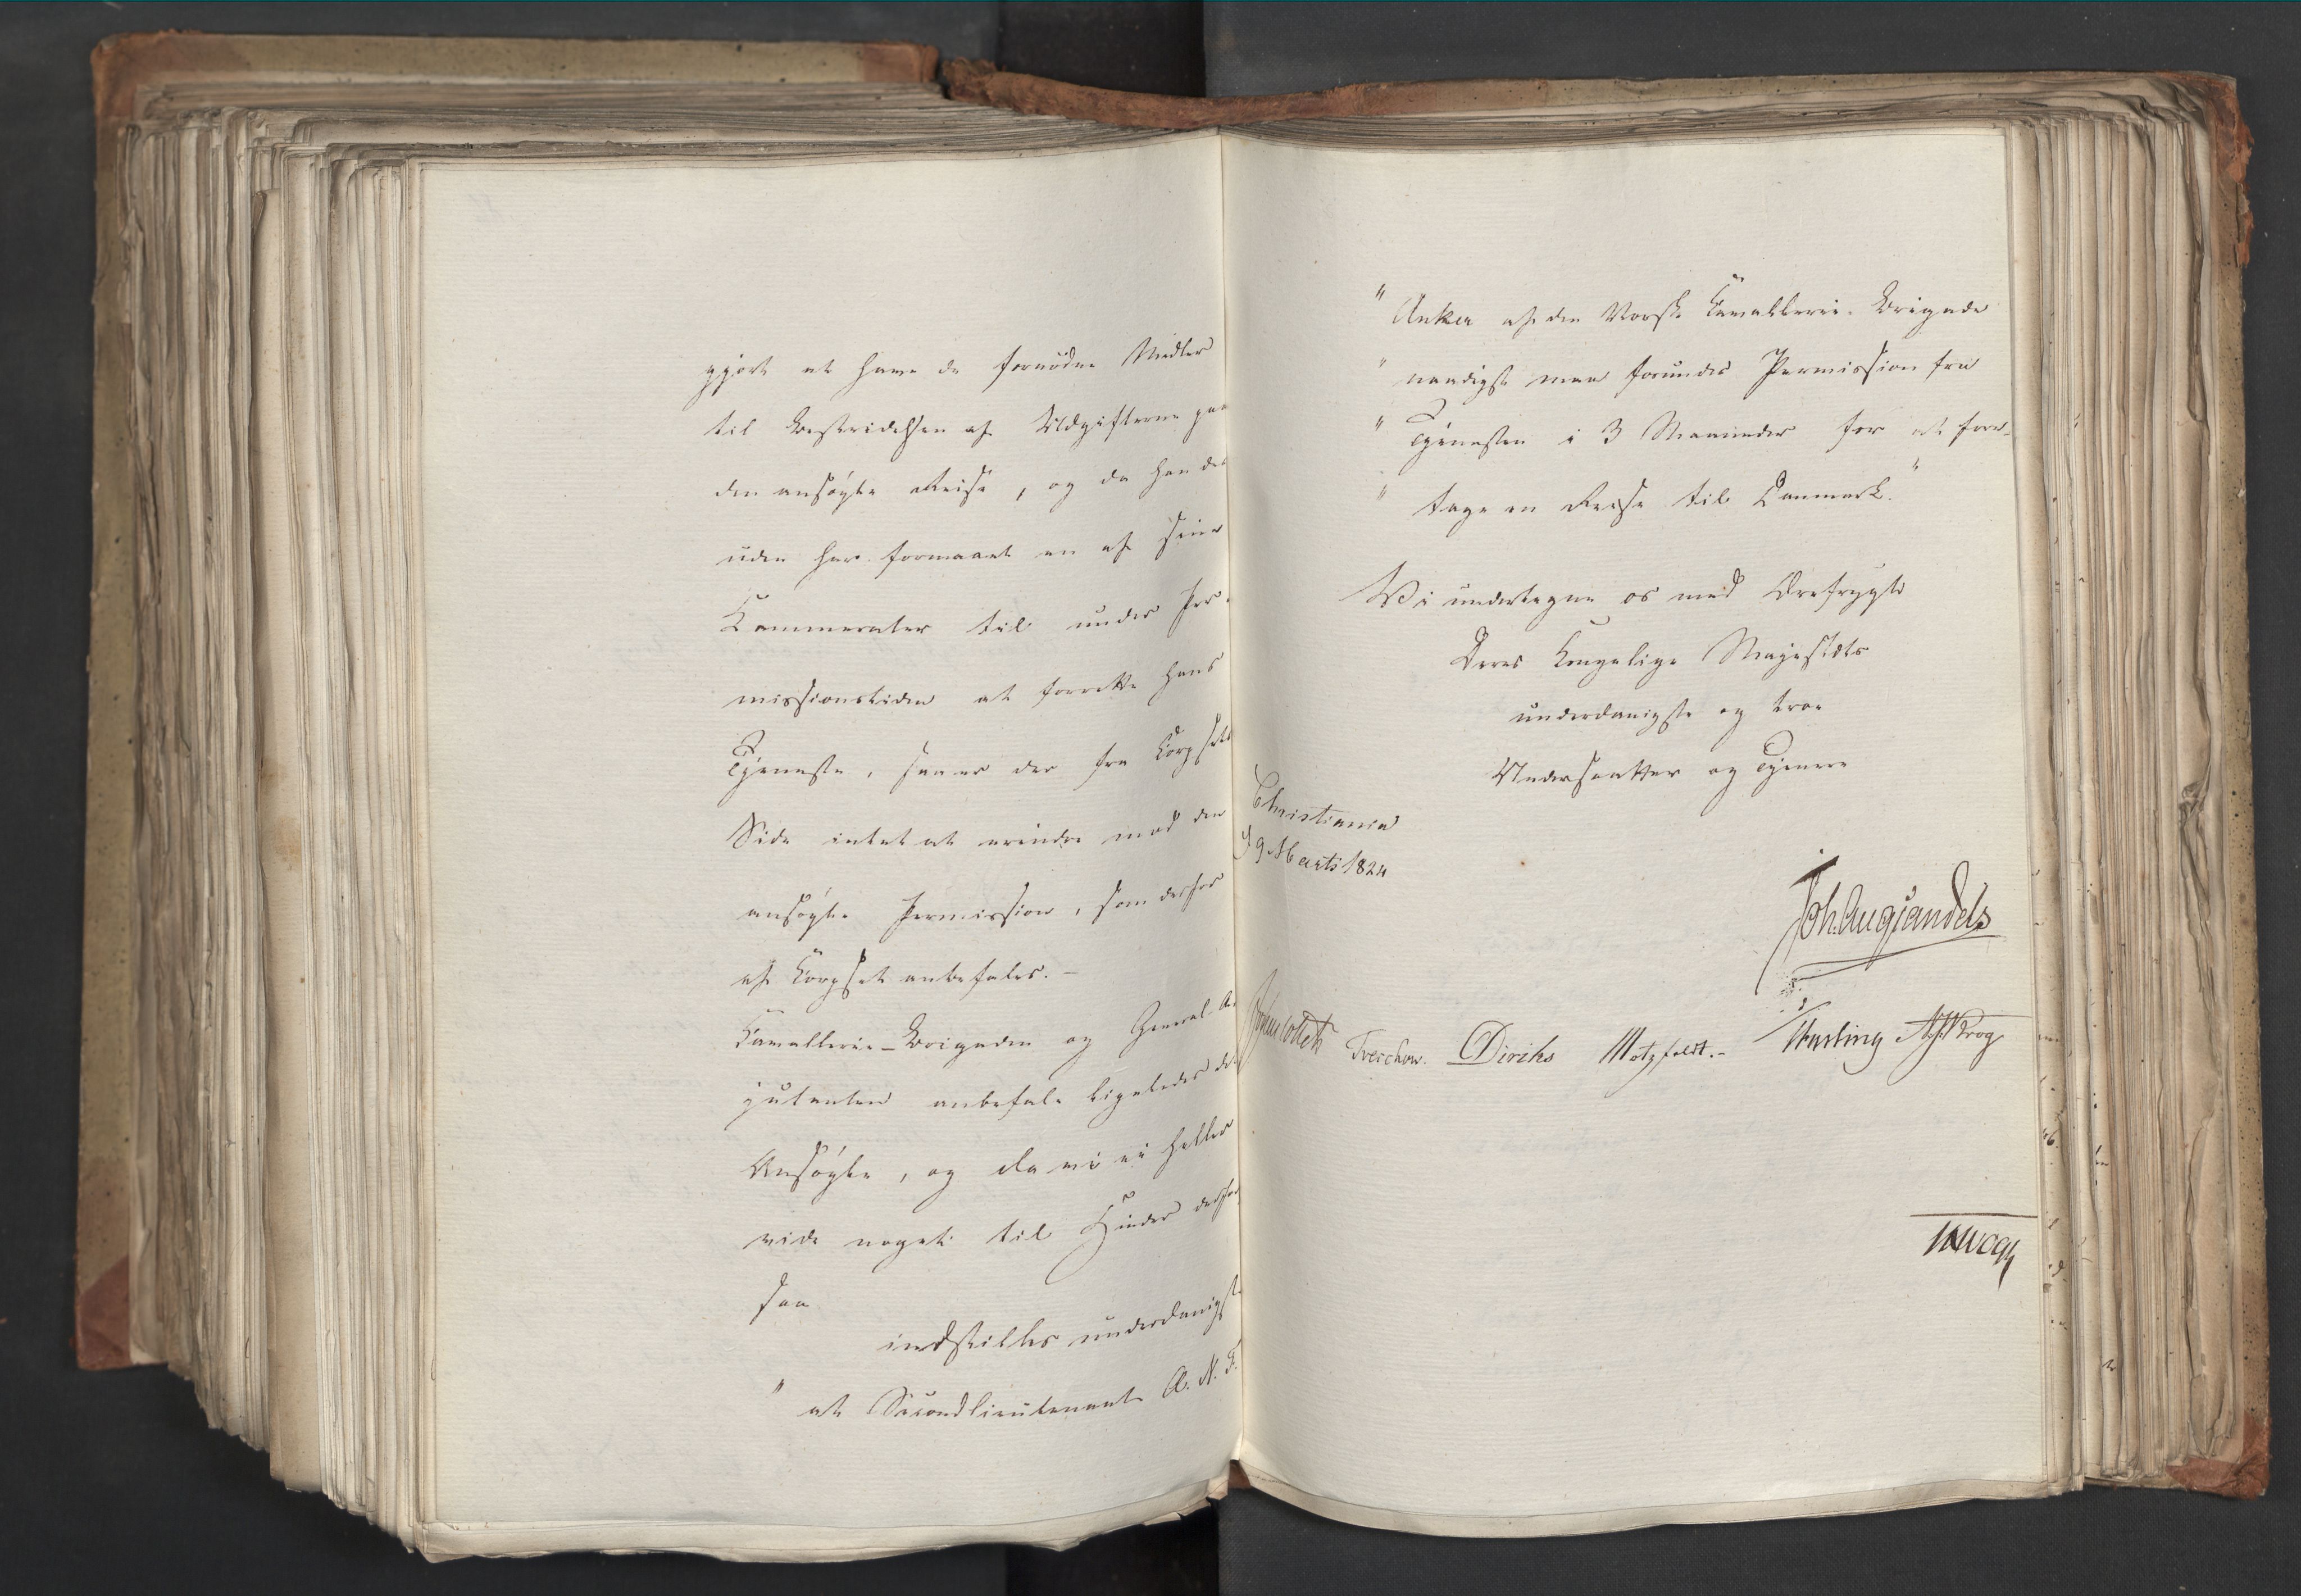 gjort at have de fornödne Midler
til Bestridelsen af Udgifterne paa
den ansögte Reise, og da han des
uden har formaaet en af sine
Kammerater til under Per-
missionstiden at forrette hans
Tjeneste, saa er der fra Corpsets
Side intet at erindre mod den
ansögte Permission, som derfor
af Corpset anbefales. -
Cavallerie-Brigaden og General-Ad
jutanten anbefale ligeledes det
Ansögte, og da vi ei heller
vide noget til Hinder derfor
saa
indstilles underdanigst
" at Secondlieutenant A. N. F.
" Anker af den Norske Cavallerie-Brigade
" naadigst maa forundes Permission fra
" Tjenesten i 3 Maaneder for at fore-
" tage en Reise til Danmark."
Vi undertegne os med Ærefrygt
Deres Kongelige Majestæts
underdanigste og troe
Undersaatter og Tjenere
Christiania
d 9 Marts 1824
Joh. Aug Sandels
Sommerhielm Treschow. Diriks Motzfeldt.- Fasting Krog
Vogt